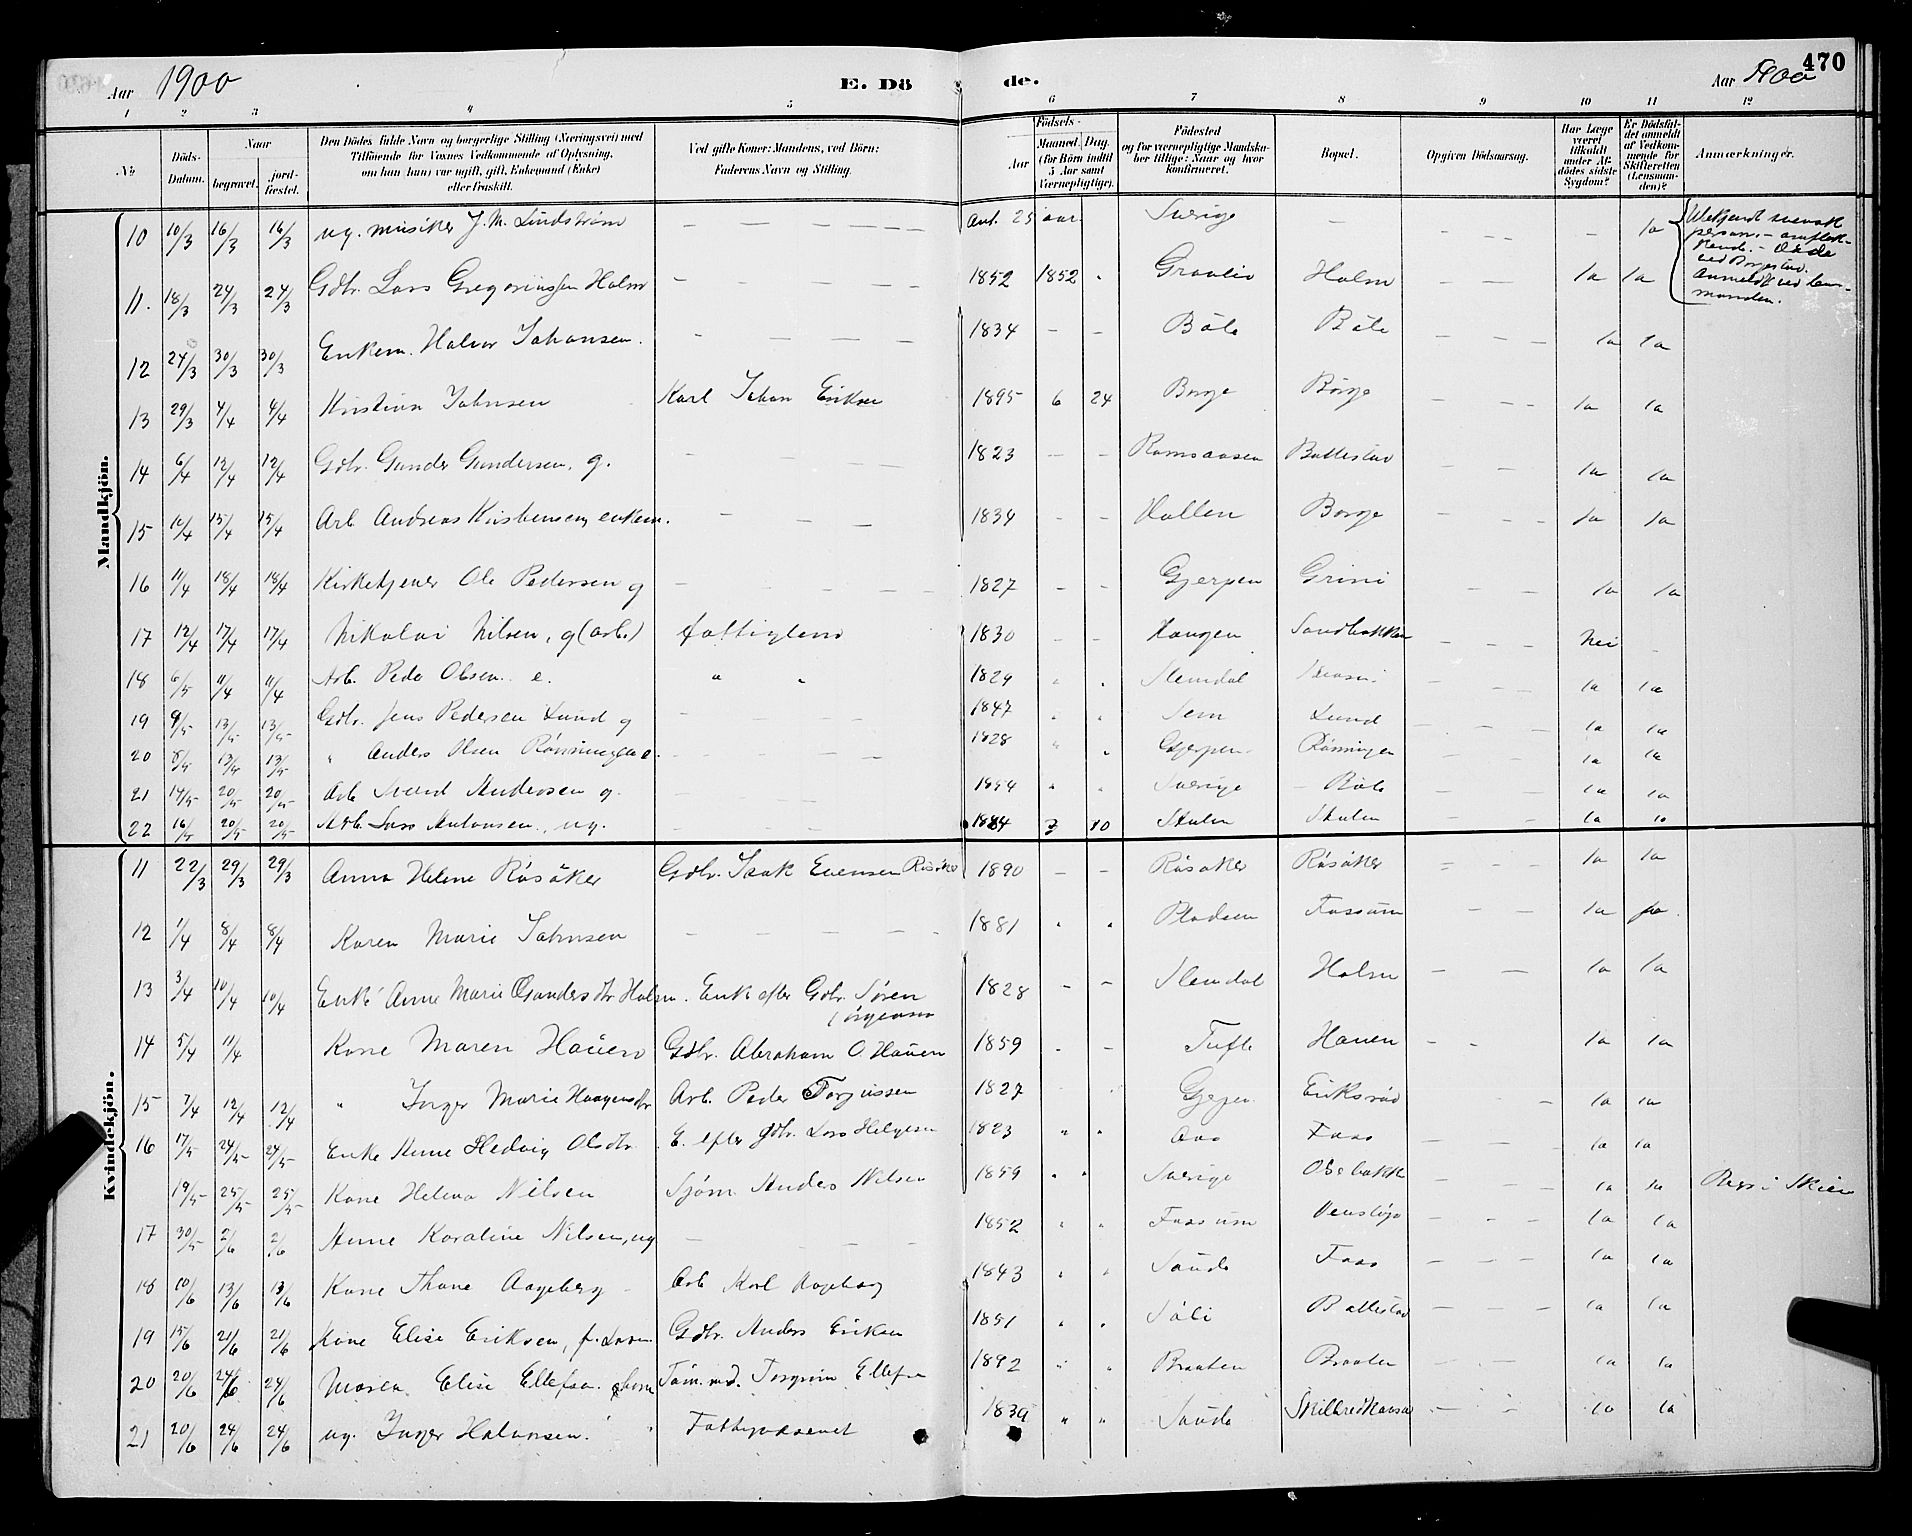 470
Aar 1900
E. Dö
de.
Aar 1900
1 2 3 4 5 6 7 8 9 10 11 12
№
Döds-Datum.
Naar
begravet.
jord-fæstet.
Den Dödes fulde Navn og borgerlige Stilling (Næringsvei) med
Tilföiende for Voxnes Vedkommende af Oplysning,
om han (hun) var ugift, gift, Enkemand (Enke)
eller fraskilt.
Ved gifte Koner: Mandens, ved Börn:
Faderens Navn og Stilling.
Födsels-
Aar
Maaned. Dag.
(for Börn indtil
5 Aar samt
Værnepligtige).
Födested
og for værnepligtige Mandska-
ber tillige: Naar og hvor
konfirmeret.
Bopæl.
Opgiven Dödsaarsag.
Har Læge
været
tilkaldt
under Af-
dödes sidste
Sygdom?
Er Dödsfal-
det anmeldt
af Vedkom-
mende for
Skifteretten
(Lensman-
den)?
Anmærkninger.
Mandkjön.
10 10/3 16/3 16/3 ug. musiker J. M. Lindström — — — — — Ant. 25 aar. Sverige — — — — — Ja Ubekjendt svensk person. — — Döde ved Borgestad. Anmeldt ved lens-manden.
11. 18/3 24/3 24/3 Gdbr. Lars Gregoriussen Holm — — — — — 1852 1852 Graalid Holm — — — Ja Ja
12 24/3 30/3 30/3 Enkem. Halvor Johansen. — — — — 1834 — — Böle Böle — — — Ja Ja
13 29/3 4/4 4/4 Kristian Johnsen Karl Johan Eriksen 1895 6 24 Borge Börge — — — Ja Ja
14 6/4 12/4 12/4 Gdbr. Gunder Gundersen, g. — — — 1823 — — Ramsaasen Ballestad — — Ja Ja
15 10/4 15/4 15/4 Arb. Andreas Kristensen, enkem. — — — 1834 — — Hallen Borge — — — Ja Ja
16 11/4 18/4 18/4 Kirketjener Ole Pedersen g — — — — 1827 — — Gjerpen Grini — — — Ja Ja
17 12/4 17/4 17/4 Nikolai Nilsen, g (arb.) fattiglem 1830 — — Haugen Sandbakken — — — Nei —
18 6/5 11/4 11/4 Arb. Peder Olsen. e. " " 1829 " " Slemdal — — Ja Ja
19 9/5 13/5 13/5 Gdbr. Jens Pedersen Lund g — — — — 1847 " " Sem Lund — — — Ja Ja
20 8/5 13/5 13/5 " Anders Olsen Rönningen e. — — — 1828 " " Gjerpen Rönningen — — — Ja Ja
21 14/5 20/5 20/5 Arb. Svend Andersen g. — — — 1854 " " Sverige Böle — — — Ja Ja
22 16/5 20/5 20/5 Arb. Lars Antonsen, ug. — — — 1884 7 10 Skulen Skulen — — — Ja Ja
Kvindekjön.
11 22/3 29/3 29/3 Anna Helene Råsåker Gdbr. Isak Evensen Råsåker 1890 — — Råsaker Råsåker — — — Ja Ja
12 1/4 8/4 8/4 Karen Marie Johnsen — — — — 1881 " " Pladsen Fossum — — — Ja Ja
13 3/4 10/4 10/4 Enke Anne Marie Gundersdtr Holm. Enke efter Gdbr. Sören Jörgensen 1828 — — Slemdal Holm — — — Ja Ja
14 5/4 11/4 Kone Maren Hauen Gdbr. Abraham O. Hauen 1859 " — Tufte Hauen — — Ja Ja
15 7/4 12/4 12/4 " Inger Marie Haagensdtr Arb. Peder Torjussen 1827 Gjerpen Eriksröd — — Ja Ja
16 17/5 24/5 24/5 Enke Anne Hedvig Olsdtr E. efter Gdbr. Lars Helgesen 1823 " " Aas Foss — — — Ja Ja
19/5 25/5 25/5 Kone Helena Nilsen Sjöm. Anders Nilsen 1859 " " Sverige — — — Ja Ja Begr. i Skien
17 30/5 2/6 2/6 Anne Karoline Nilsen, ug — — — 1852 " " Fossum Venstöp — — — Ja Ja
18 10/6 13/6 13/6 Kone Thone Aageberg Arb. Karl Aageberg 1843 " " Saude Foss — — — Ja Ja
19 15/6 21/6 21/6 Kone Elise Eriksen, f. Larsen Gdbr. Anders Eriksen 1851 " " Söli Ballestad — — — Ja Ja
20 20/6 24/6 24/6 Maren Elise Ellefsen Töm.md. Torgrim Ellefsen 1892 " " Braaten Braaten — — Ja Ja
21 20/6 24/6 24/6 ug. Inger Halvorsen. " Fattigvæsenet 1839 " " Saude — — — Ja Ja